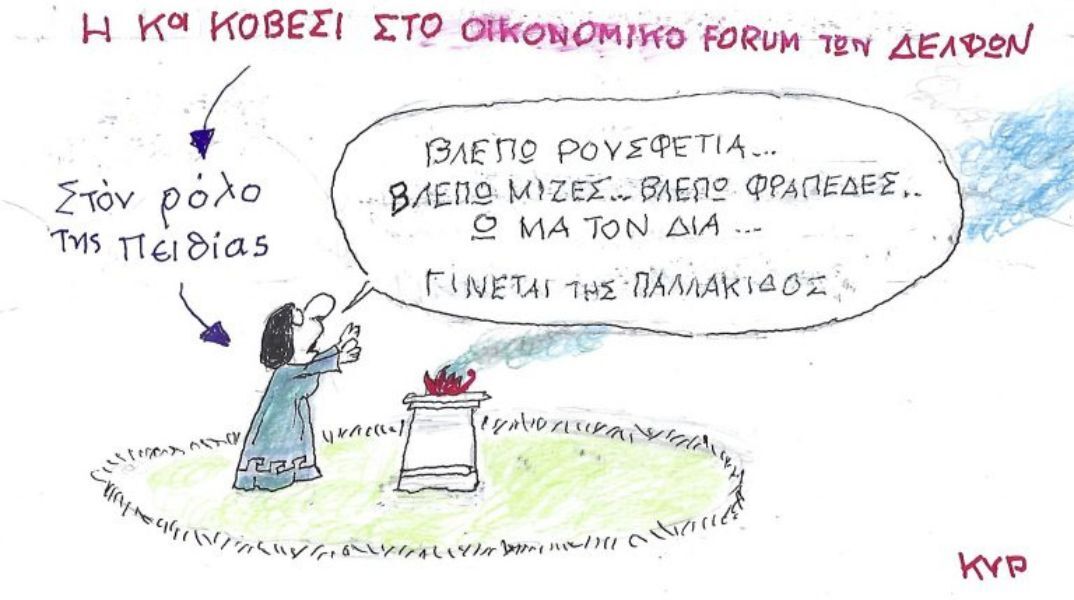 Η Κα ΚΟΒΕΣΙ ΣΤΟ ΟΙΚΟΝΟΜΙΚΟ FORUM ΤΩΝ ΔΕΛΦΩΝ
Στὸν ρόλο
της Πειθίας
ΒΛΕΠΩ ΡΟΥΣΦΕΤΙΑ...
ΒΛΕΠΩ ΜΙΖΕΣ... ΒΛΕΠΩ ΦΡΑΠΕΔΕΣ..
Ω ΜΑ ΤΟΝ ΔΙΑ ...
ΓΙΝΕΤΑΙ ΤΗΣ ΠΑΛΛΑΚΙΔΟΣ
ΚΥΡ